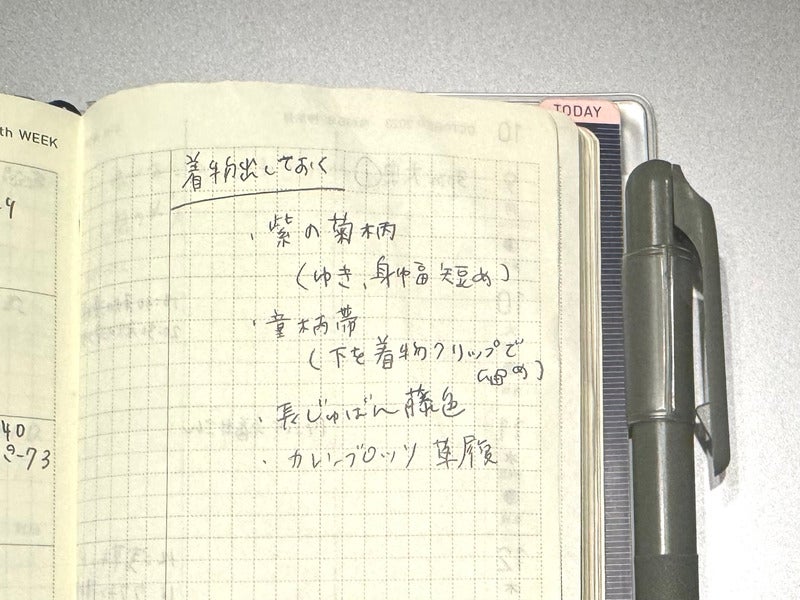 TODAY
th WEEK
着物出しておく
・紫の菊柄
(ゆき、身巾幅短め)
・童柄帯
(下を着物クリップで
留め)
・長じゅばん 藤色
・カレンブロッソ 草履
40